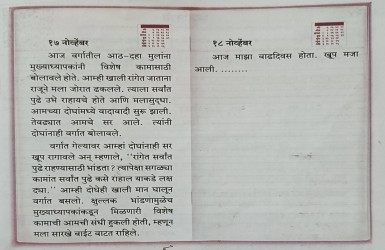 १७ नोव्हेंबर
आज वर्गातील आठ-दहा मुलांना
मुख्याध्यापकांनी विशेष कामासाठी
बोलावले होते. आम्ही खाली रांगेत जाताना
राजूने मला जोरात ढकलले. त्याला सर्वांत
पुढे उभे राहायचे होते आणि मलासुद्धा.
आमच्या दोघांमध्ये वादावादी सुरू झाली.
तेवढ्यात आमचे सर आले. त्यांनी
दोघांनाही वर्गात बोलावले.
वर्गात गेल्यावर आम्हां दोघांनाही सर
खूप रागावले अन् म्हणाले, ‘‘रांगेत सर्वांत
पुढे राहण्यासाठी भांडता ? त्यापेक्षा सगळ्या
कामांत सर्वांत पुढे कसे राहाल याकडे लक्ष
द्या.’’ आम्ही दोघेही खाली मान घालून
वर्गात बसलो. क्षुल्लक भांडणामुळेच
मुख्याध्यापकांकडून मिळणारी विशेष
कामाची आमची संधी हुकली होती, म्हणून
मला सारखे वाईट वाटत राहिले.
१८ नोव्हेंबर
आज माझा वाढदिवस होता. खूप मजा
आली. .........